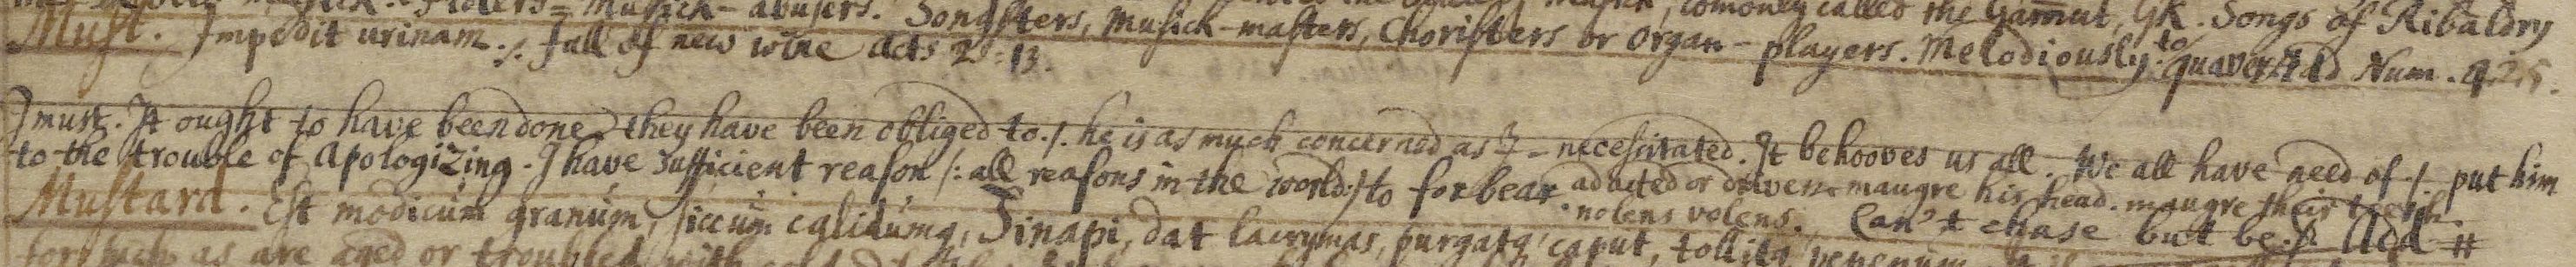 Musick-abusers. Songsters, Musick-masters, Choristers or Organ-players. Melodiously. to quaver Add Num. 
comonly called the Gamut, GK. Songs of Ribaldry
Must. Impedit urinam ./. full of new wine Acts 2: 13.
I must. It ought to have been done they have been obliged to ./. he is as much concerned as I - necessitated. It behooves us all. We all have need of ./. put him
to the trouble of Apologizing. I have sufficient reason /: all reasons in the world:/ to forbear. adacted or driven maugre his head. maugre their teeth
nolens volens. Can't chase but be ./. Add #
Mustard. Est modicum granum, siccum calidumq, Sinapi, dat lacrymas, purgatq caput, tollitq venenum
for such as are aged or troubled with